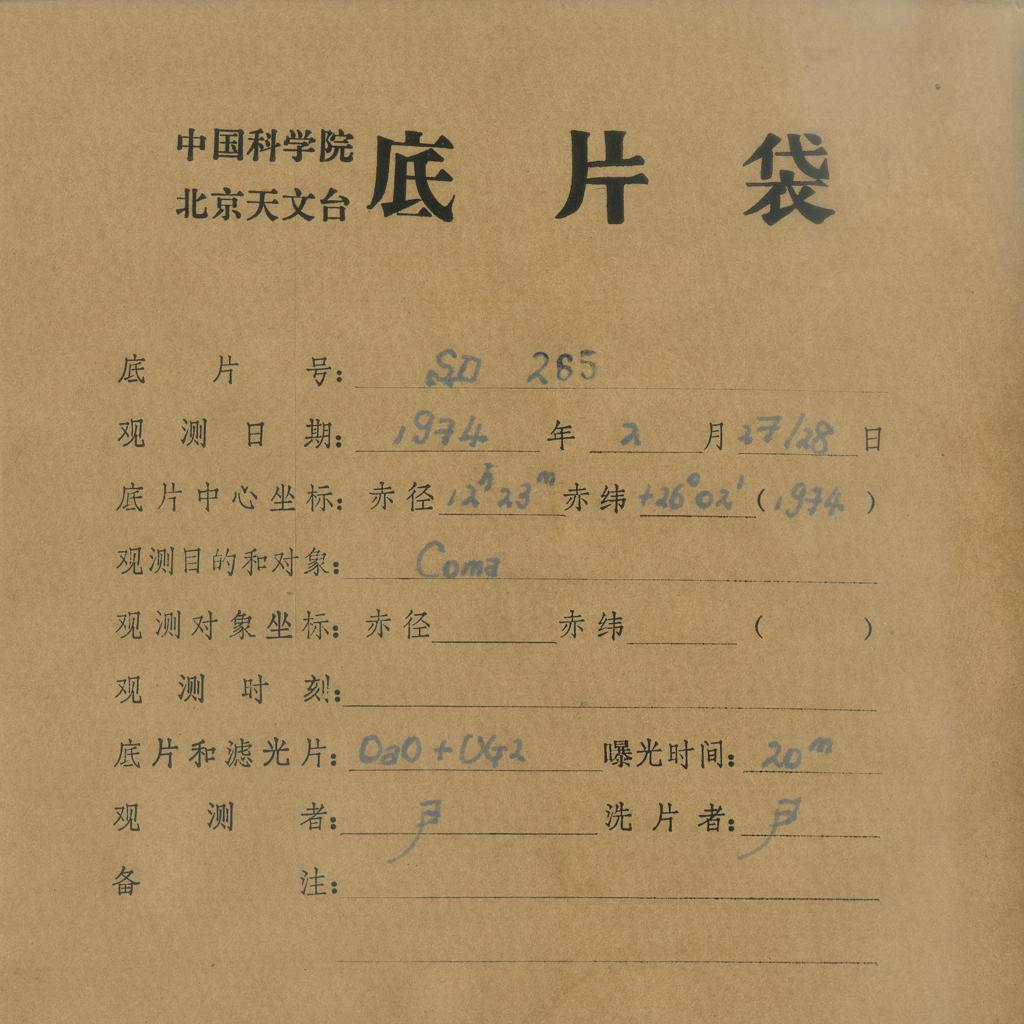 中国科学院
北京天文台
底片袋
底片号: SD 285
观测日期: 1974年2月27/28日
底片中心坐标: 赤径12h23m赤纬+26°02'(1974)
观测目的和对象: Coma
观测对象坐标: 赤径 赤纬 ( )
观测时刻:
底片和滤光片: OaO+UG2 曝光时间: 20m
观测者: 尹 洗片者: 尹
备注: